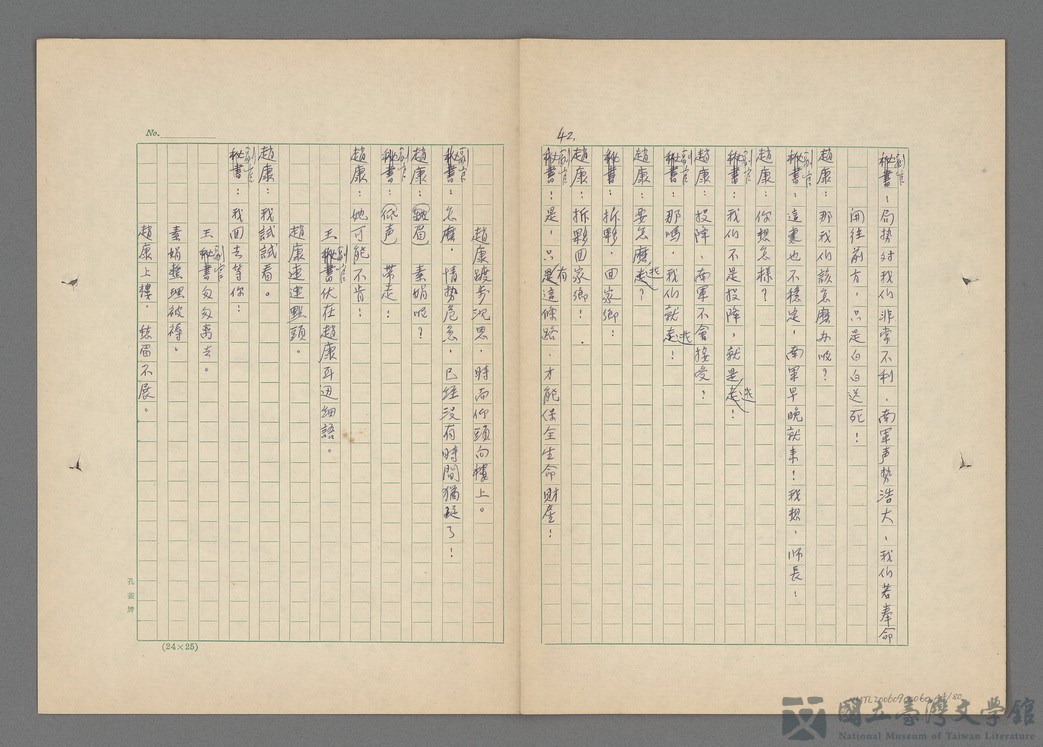 42.
副官秘書：局势对我们非常不利，南軍声势浩大，我们若奉命
開往前方，只是白白送死！
趙康：那我们該怎麽办呢？
副官秘書：這裏也不穩定，南軍早晚就来！我想，师長！
趙康：你想怎樣？
副官秘書：我们不是投降，就是走逃！
趙康：投降，南軍不會接受？
副官秘書：那嗎，我们就走逃！
趙康：要怎麽走逃？
秘書：拆夥，回家鄉！
趙康：拆夥回家鄉！
副官秘書：是，只是有這條路，才能保全生命財產！
No.
趙康踱步沉思，時而仰頭向樓上。
副官秘書：怎麽，情势危急，已經没有時間猶疑了！
趙康：眉 素娟呢？
副官秘書：声 带走！
趙康：她可能不肯！
王副官秘書伏在趙康耳边細語。
趙康連連點頭。
趙康：我試試看。
副官秘書：我回去等你！
王副官秘書匆匆离去。
素娟整理被褥。
趙康上樓，愁眉不展。
孔雀牌
(24×25)
國立臺灣文學館
National Museum of Taiwan Literature